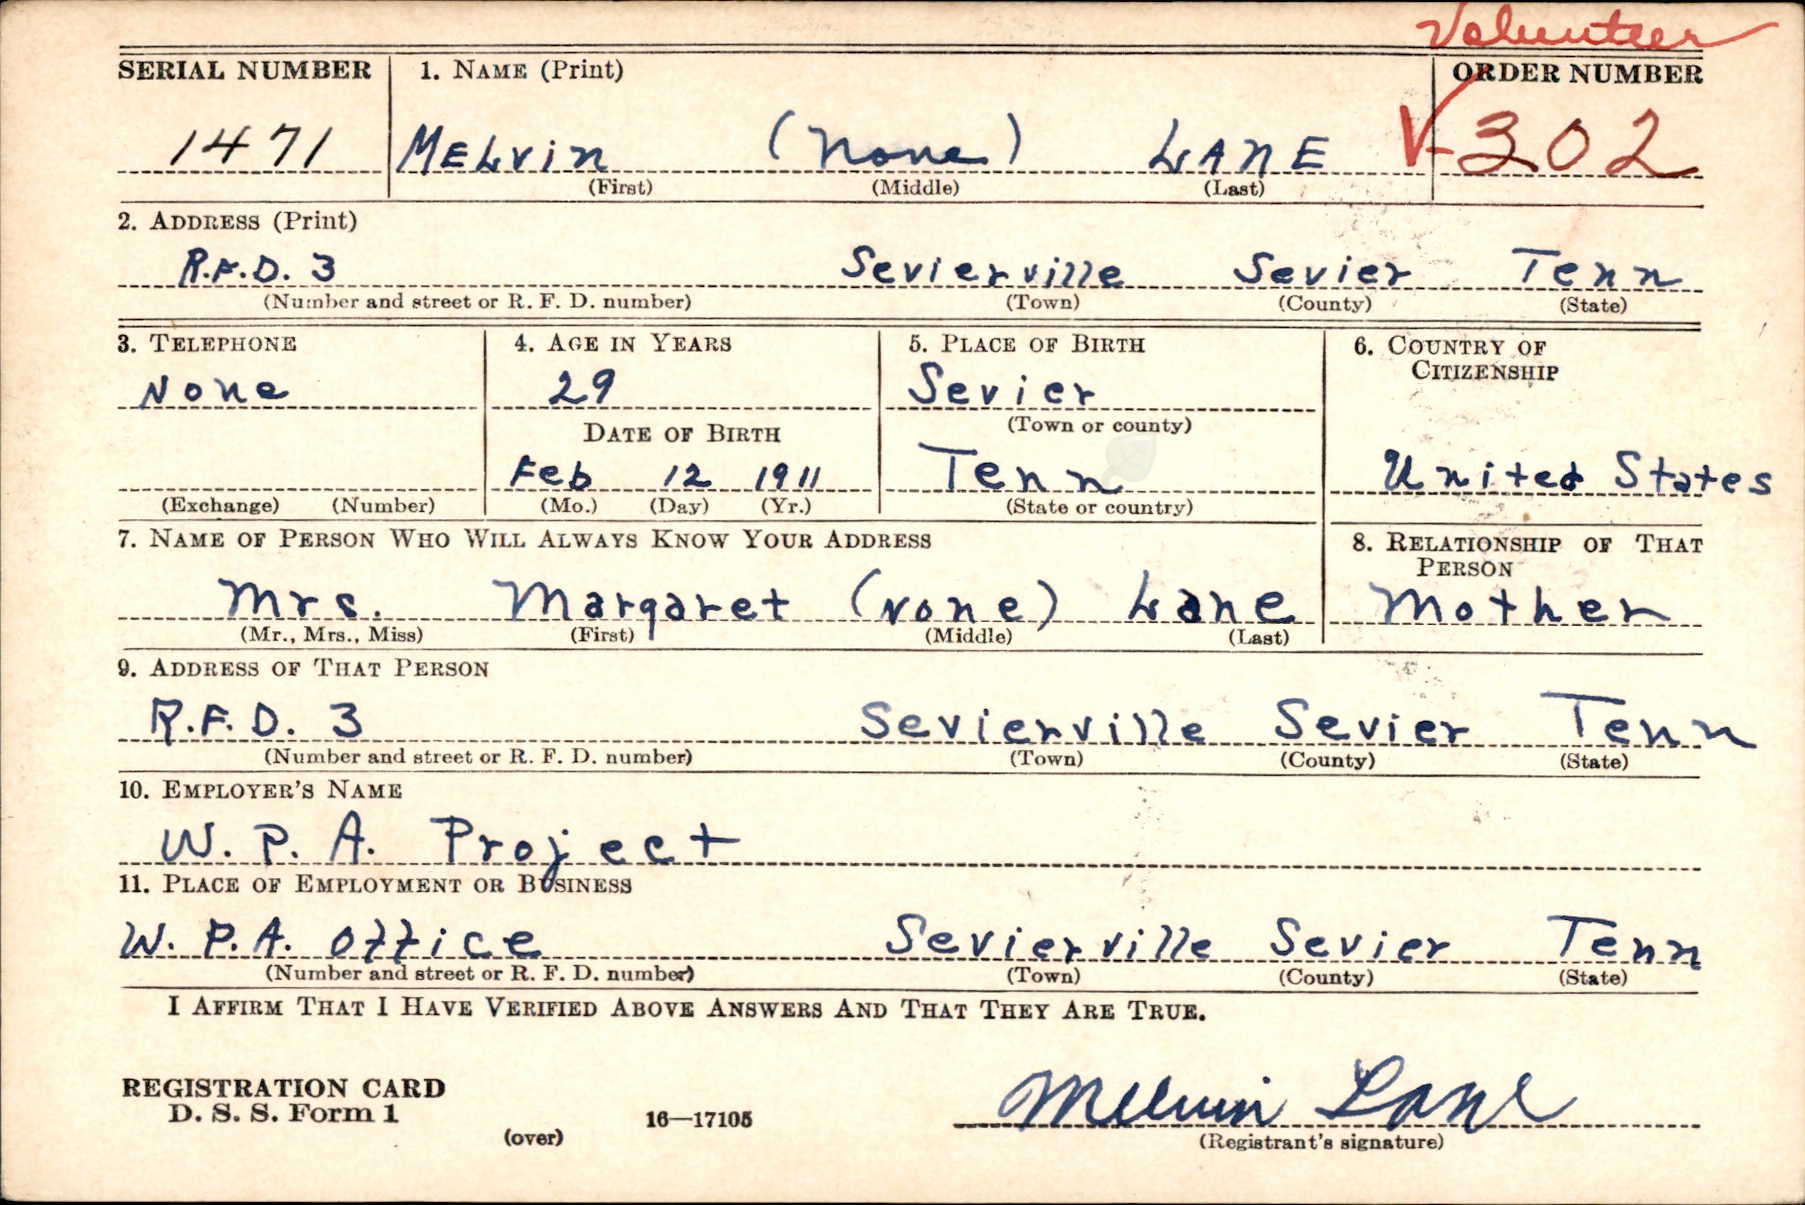 Volunteer
SERIAL NUMBER 1. NAME (Print) ORDER NUMBER
1471 MELVIN (None) LANE V-302
(First) (Middle) (Last)
2. ADDRESS (Print)
R.F.D. 3 Sevierville Sevier Tenn
(Number and street or R. F. D. number) (Town) (County) (State)
3. TELEPHONE 4. AGE IN YEARS 5. PLACE OF BIRTH 6. COUNTRY OF
CITIZENSHIP
None 29 Sevier
(Town or county)
DATE OF BIRTH
Feb 12 1911 Tenn United States
(Exchange) (Number) (Mo.) (Day) (Yr.) (State or country)
7. NAME OF PERSON WHO WILL ALWAYS KNOW YOUR ADDRESS 8. RELATIONSHIP OF THAT
PERSON
Mrs. Margaret (None) Lane Mother
(Mr., Mrs., Miss) (First) (Middle) (Last)
9. ADDRESS OF THAT PERSON
R.F.D. 3 Sevierville Sevier Tenn
(Number and street or R. F. D. number) (Town) (County) (State)
10. EMPLOYER'S NAME
W. P. A. Project
11. PLACE OF EMPLOYMENT OR BUSINESS
W. P. A. Office Sevierville Sevier Tenn
(Number and street or R. F. D. number) (Town) (County) (State)
I AFFIRM THAT I HAVE VERIFIED ABOVE ANSWERS AND THAT THEY ARE TRUE.
REGISTRATION CARD
D. S. S. Form 1 16—17105 Melvin Lane
(over) (Registrant's signature)